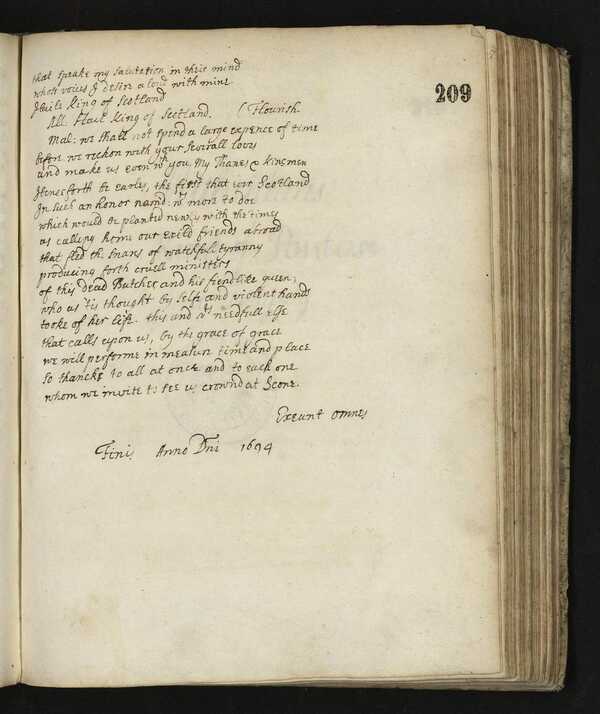 209
that speake my salutation in their mind
whose voices I desire aloud with mine
Haile King of Scotland
All. Haile King of Scotland. (Flourish
Mal: we shall not spend a large expence of time
before we reckon with your severall loves
and make us even wth you, My Thanes & kinsmen
Henceforth be Earles, the first that ever Scotland
In such an honor nam'd: wts more to doe
which would be planted newly with the time
as calling home our exild friends abroad
that fled the snares of watchfull tyranny
producing forth cruell ministers
of this dead Butcher and his fiendlike queen;
who as 'tis thought by selfe and violent hands
tooke of her life. this and wt needfull else
that calls upon us, by the grace of grace
we will performe in measure time and place
So thancks to all at once and to each one
whom we invite to see us crownd at Scone.
Exeunt omnes
Finis Anno Dni 1694